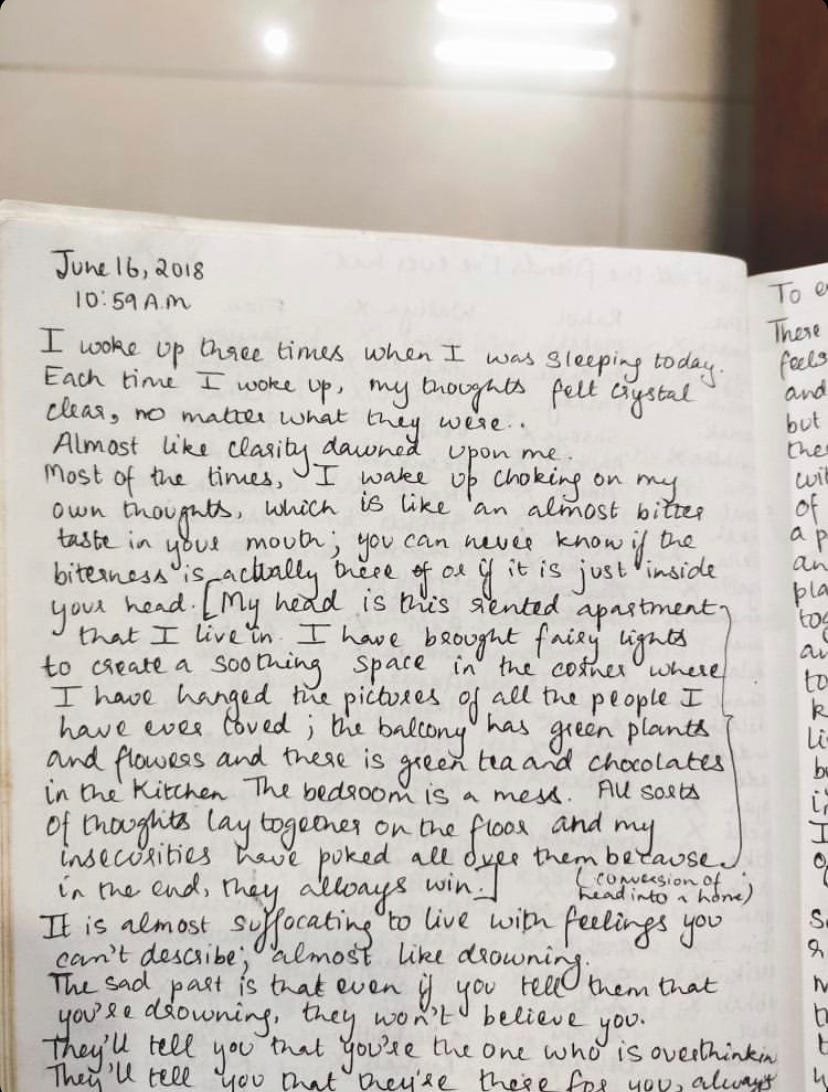 June 16, 2018
10:59 A.M
I woke up three times when I was sleeping today.
Each time I woke up, my thoughts felt crystal
clear, no matter what they were..
Almost like clarity dawned upon me.
Most of the times, I wake up choking on my
own thoughts, which is like an almost bitter
taste in your mouth; you can never know if the
biterness is actually there of or if it is just inside
your head. [My head is this rented apartment
that I live in. I have brought fairy lights
to create a soothing space in the corner where
I have hanged the pictures of all the people I
have ever loved; the balcony has green plants
and flowers and there is green tea and chocolates
in the kitchen The bedroom is a mess. All sorts
of thoughts lay together on the floor and my
insecurities have puked all over them because
in the end, they always win.]
(conversion of
head into a home)
It is almost suffocating to live with feelings you
can't describe; almost like drowning.
The sad part is that even if you tell them that
you're drowning, they won't believe you.
They'll tell you that you're the one who is overthinkin
They'll tell you that they're there for you, always
To e
There
feels
and
but
the
wit
of
a p
an
pla
tog
au
to
k
li
b
i
I
o
S